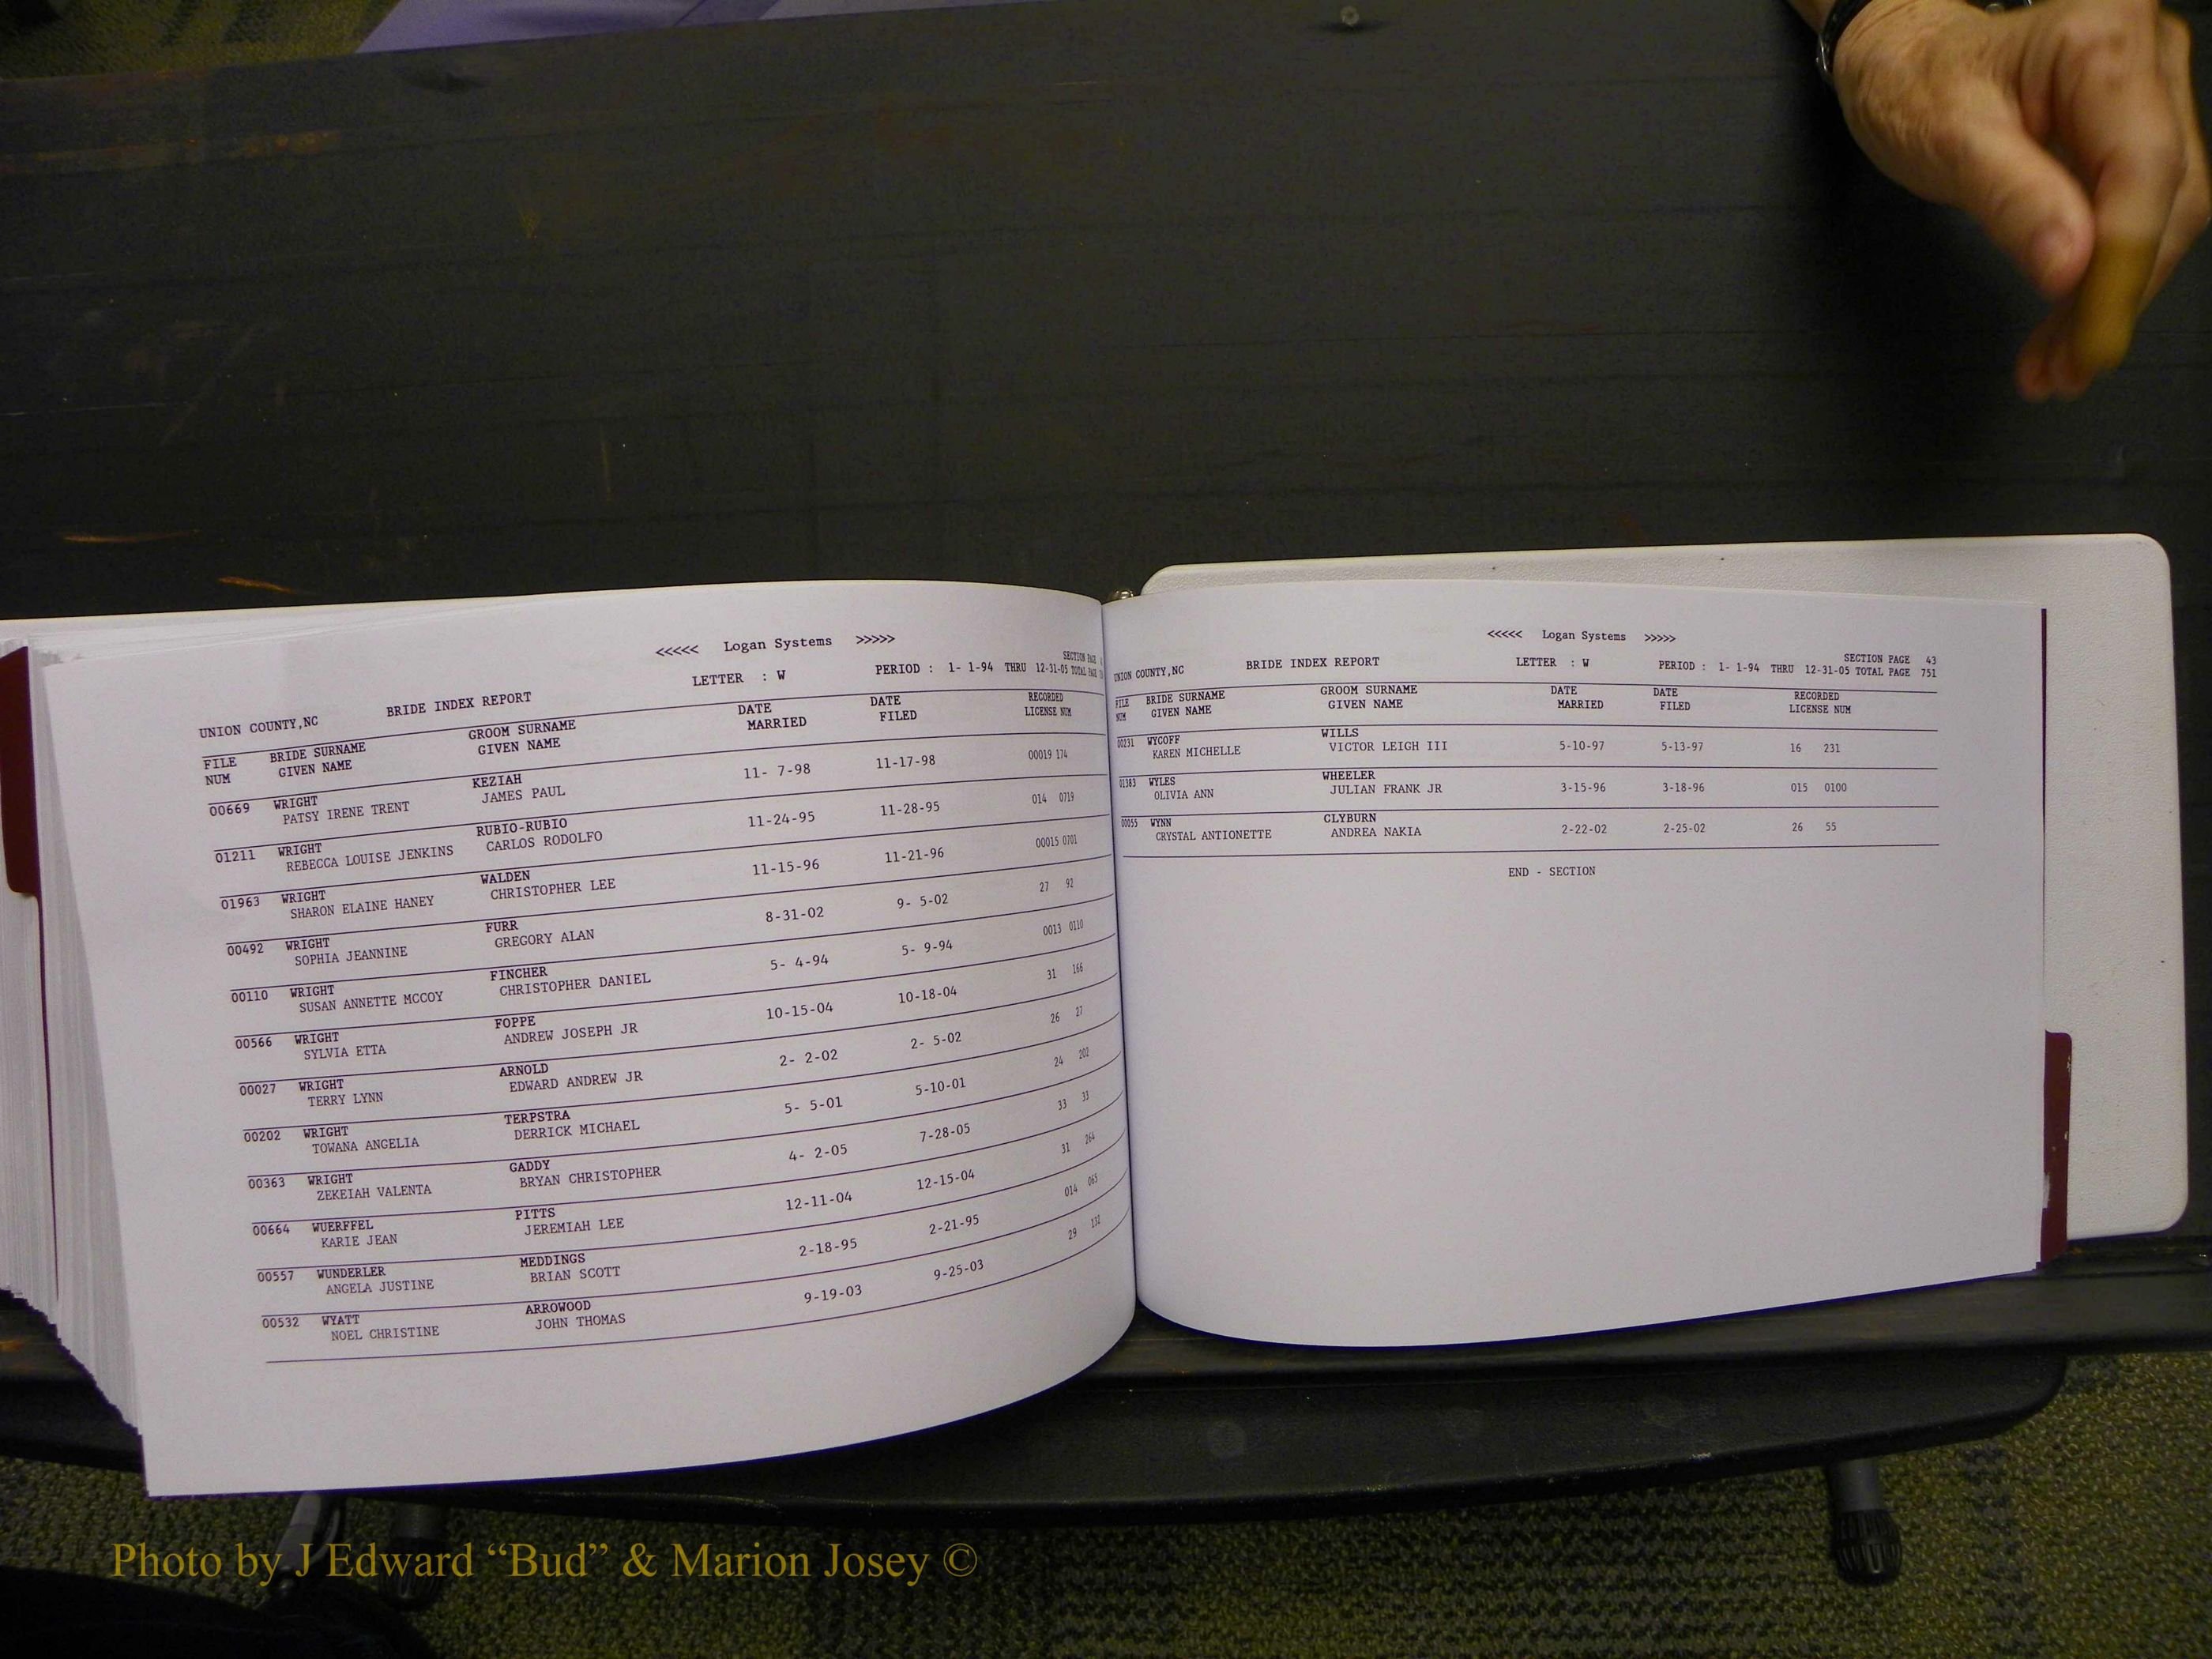 <<<<< Logan Systems >>>>>
UNION COUNTY,NC BRIDE INDEX REPORT LETTER : W PERIOD : 1- 1-94 THRU 12-31-05 TOTAL PAGE
SECTION PAGE
FILE BRIDE SURNAME GROOM SURNAME DATE DATE RECORDED
NUM GIVEN NAME GIVEN NAME MARRIED FILED LICENSE NUM
00669 WRIGHT KEZIAH 11- 7-98 11-17-98 00019 174
PATSY IRENE TRENT JAMES PAUL
01211 WRIGHT RUBIO-RUBIO 11-24-95 11-28-95 014 0719
REBECCA LOUISE JENKINS CARLOS RODOLFO
01963 WRIGHT WALDEN 11-15-96 11-21-96 00015 0701
SHARON ELAINE HANEY CHRISTOPHER LEE
00492 WRIGHT FURR 8-31-02 9- 5-02 27 92
SOPHIA JEANNINE GREGORY ALAN
00110 WRIGHT FINCHER 5- 4-94 5- 9-94 0013 0110
SUSAN ANNETTE MCCOY CHRISTOPHER DANIEL
00566 WRIGHT FOPPE 10-15-04 10-18-04 31 166
SYLVIA ETTA ANDREW JOSEPH JR
00027 WRIGHT ARNOLD 2- 2-02 2- 5-02 26 27
TERRY LYNN EDWARD ANDREW JR
00202 WRIGHT TERPSTRA 5- 5-01 5-10-01 24 202
TOWANA ANGELIA DERRICK MICHAEL
00363 WRIGHT GADDY 4- 2-05 7-28-05 33 33
ZEKEIAH VALENTA BRYAN CHRISTOPHER
00664 WUERFFEL PITTS 12-11-04 12-15-04 31 264
KARIE JEAN JEREMIAH LEE
00557 WUNDERLER MEDDINGS 2-18-95 2-21-95 014 065
ANGELA JUSTINE BRIAN SCOTT
00532 WYATT ARROWOOD 9-19-03 9-25-03 29 132
NOEL CHRISTINE JOHN THOMAS
<<<<< Logan Systems >>>>>
SECTION PAGE 43
UNION COUNTY,NC BRIDE INDEX REPORT LETTER : W PERIOD : 1- 1-94 THRU 12-31-05 TOTAL PAGE 751
FILE BRIDE SURNAME GROOM SURNAME DATE DATE RECORDED
NUM GIVEN NAME GIVEN NAME MARRIED FILED LICENSE NUM
00231 WYCOFF WILLS 5-10-97 5-13-97 16 231
KAREN MICHELLE VICTOR LEIGH III
01383 WYLES WHEELER 3-15-96 3-18-96 015 0100
OLIVIA ANN JULIAN FRANK JR
00055 WYNN CLYBURN 2-22-02 2-25-02 26 55
CRYSTAL ANTIONETTE ANDREA NAKIA
END - SECTION
Photo by J Edward “Bud” & Marion Josey ©